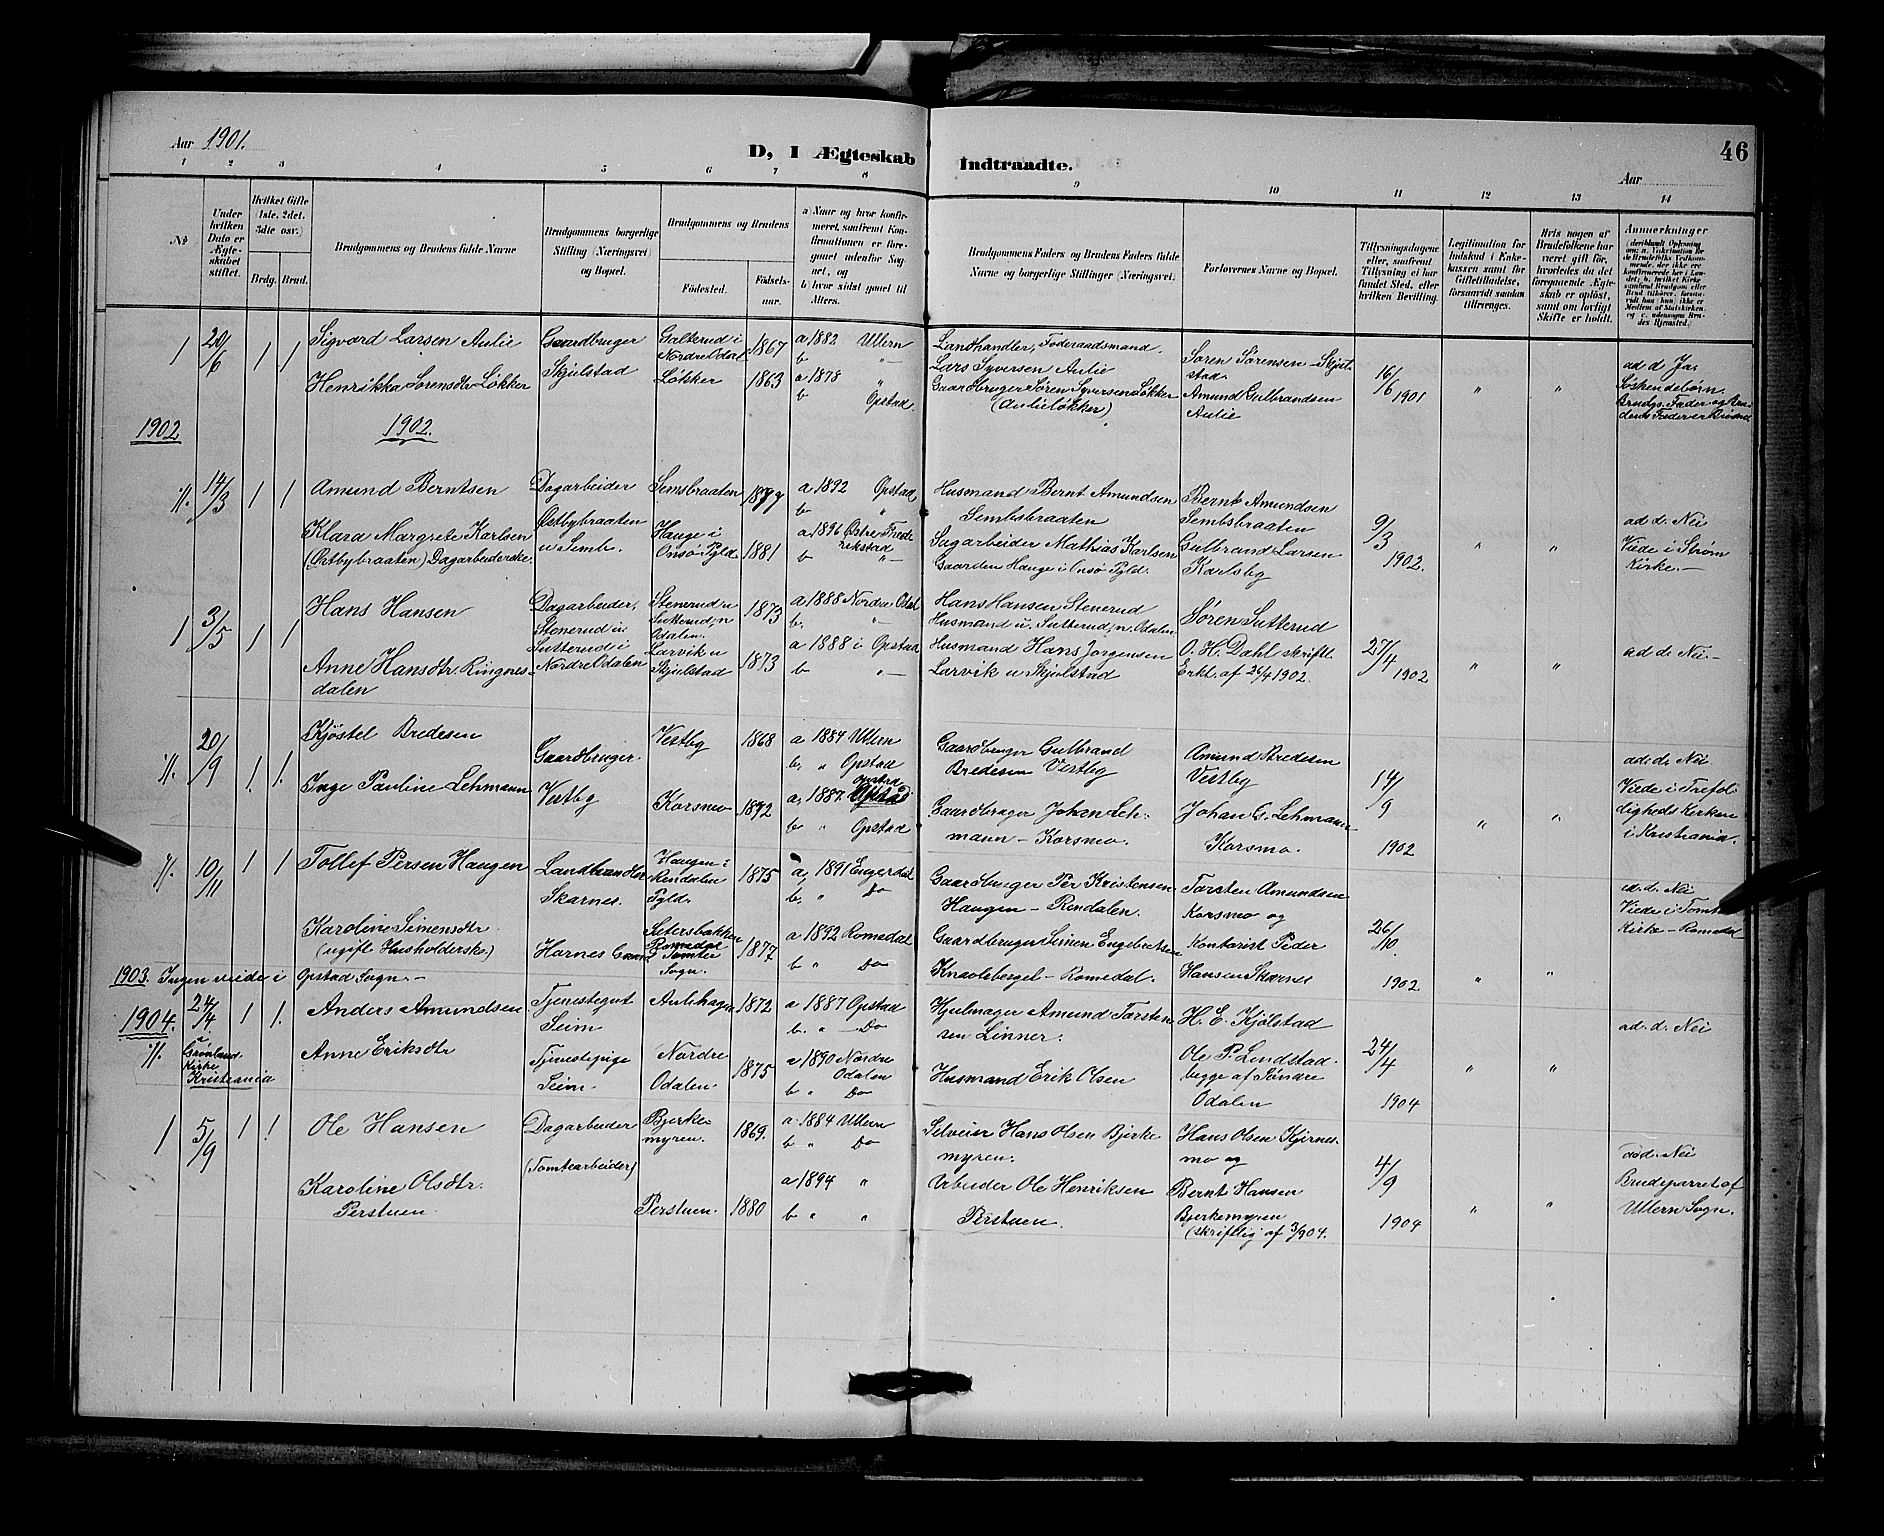 Aar 1901.
D, I Ægteskab Indtraadte.
Aar
46
1 2 3 4 5 6 7 8 9 10 11 12 13 14
No
Under hvilken Dato er Ægteskabet stiftet.
Hvilket Gifte (1ste, 2det, 3die osv.)
Brdg. Brud.
Brudgommens og Brudens fulde Navne
Brudgommens borgerlige Stilling (Næringsvei) og Bopæl.
Brudgommens og Brudens
Fødested.
Fødselsaar.
a) Naar og hvor konfirmeret, saafremt Konfirmationen er foregaaet udenfor Sognet, og
b) hvor sidst gaaet til Alters.
Brudgommens Faders og Brudens Faders fulde Navne og borgerlige Stillinger (Næringsvei.
Forlovernes Navne og Bopæl.
Tillysningsdagene eller, saafremt Tillysning ei har fundet Sted, efter hvilken Bevilling.
Legitimation for Indskud i Enkekassen samt for Giftetilladelse, forsaavidt saadan tiltrænges.
Hvis nogen af Brudefolkene har været gift før, hvorledes da det foregaaende Ægteskab er opløst, samt om lovligt Skifte er holdt.
Anmærkninger
1 20/6 1 1
Sigvard Larsen Aulie
Gaardbruger
Skjulstad
Galterud i
Nordre Odal
1867
a 1882 Ullern
b "
Landhandler, Føderaadsmand
Lars Syversen Aulie
Søren Sørensen Skjulstad
16/6 1901
" "
ad d Ja,
Søskendebørn
Henrikka Sørensdtr Løkker
Løkker
1863
a 1878 "
b Opstad
Gaardbruger Søren Syversen Løkker
(Aulieløkker)
Amund Gulbrandsen
Aulie
1902 1902.
14/3 1 1
Amund Berntsen
Dagarbeider
Østbybraaten
u Semb.
Semsbraaten
1877
a 1892 Opstad
b "
Husmand Bernt Amundsen
Sembsbraaten
Bernt Amundsen
Sembsbraaten
9/3 1902.
" "
ad d. Nei
Viede i Strøm
Kirke.
Klara Margrete Karlsen
(Østbybraaten) Dagarbeiderske.
Hauge i
Onsø Pgld
1881
a 1896 Østre Frederikstad
b "
Sagarbeider Mathias Karlsen
Gaarden Hauge i Onsø Pgld.
Gulbrand Larsen
Karlsby
1 3/5 1 1
Hans Hansen
Dagarbeider,
Stenerud u
Sutterud i
Nordre Odalen
Stenerud u
Sutterud, n
Odalen.
1873
a 1888 Nordre Odal
b. "
Hans Hansen Stenerud
Husmand u. Sutterud, n. Odalen.
Søren Sutterud
27/4 1902
" "
ad d. Nei
Anne Hansdtr. Ringnesdalen
Larvik u
Skjulstad
1873
a 1888 i Opstad
b "
Husmand Hans Jørgensen
Larvik u Skjulstad
O. H. Dahl skriftl.
Erkl. af 26/4 1902.
20/9 1. 1.
Kjøstel Bredesen
Gaardbruger.
Vestby
Vestby
1868
a 1884 Ullern
b. " Opstad
Gaardbruger Gulbrand
Bredesen Vestby
Amund Bredesen
Vestby
14/9 1902
" "
ad. d. Nei
Viede i Trefoldigheds Kirken
i Kristiania.
Inge Pauline Lehmann
Korsmo
1872
a. 1887. Opstad
b " Opstad
Gaardbruger Johan Lehmann - Korsmo.
Johan G. Lehmann
Korsmo.
10/11 1 1
Tollef Persen Haugen
Landhandler
Skarnes.
Haugen i
Rendalen
Pgld.
1875
a, 1891 Engerdal
b, " Do
Gaardbruger Per Kristensen
Haugen - Rendalen.
Torsten Amundsen
Korsmo og
26/10. 1902.
" "
ad. d. Nei
Viede i Tomter
Kirke - Romedal
Karoline Simensdtr
(ugift Husholderske)
Harnes Gaard
Setersbakken
Romedal
Tomter
Sogn.
1877
a 1892 Romedal
b " Do
Gaardbruger Simen Engebretsen
Knavleberget - Romedal.
Kontorist Peder
Hansen Skarnes
1903. Ingen viede i Opstad Sogn. -
1904.
24/4. 1 1.
i
Grønland
Kirke
Kristiania
Anders Amundsen
Tjenestegut
Seim
Auli hagen
1872
a 1887 Opstad
b. " Do
Hjulmager Amund Torstensen Linner.
H. E. Kjølstad
24/4 1904
" "
ad. d. Nei
Anne Eriksdtr
Tjenestepige
Seim.
Nordre
Odalen
1875
a 1890 Nordre
Odalen
b " Do
Husmand Erik Olsen
Ole P. Lundstad
begge af Søndre
Odalen
1 5/9 1 1
Ole Hansen
Dagarbeider
(Tomtearbeider)
Bjerkemyren.
1869.
a. 1884 Ullern
b " Do
Selveier Hans Olsen Bjerkemyren.
Hans Olsen Kjernesmo og
4/9 1904
" "
ad d. Nei
Brudeparret af
Ullern Sogn.
Karoline Olsdtr.
Perstuen.
Perstuen.
1880
a 1894 "
b " "
Arbeider Ole Henriksen
Perstuen.
Bernt Hansen
Bjerkemyren
(skriftlig af 3/904.